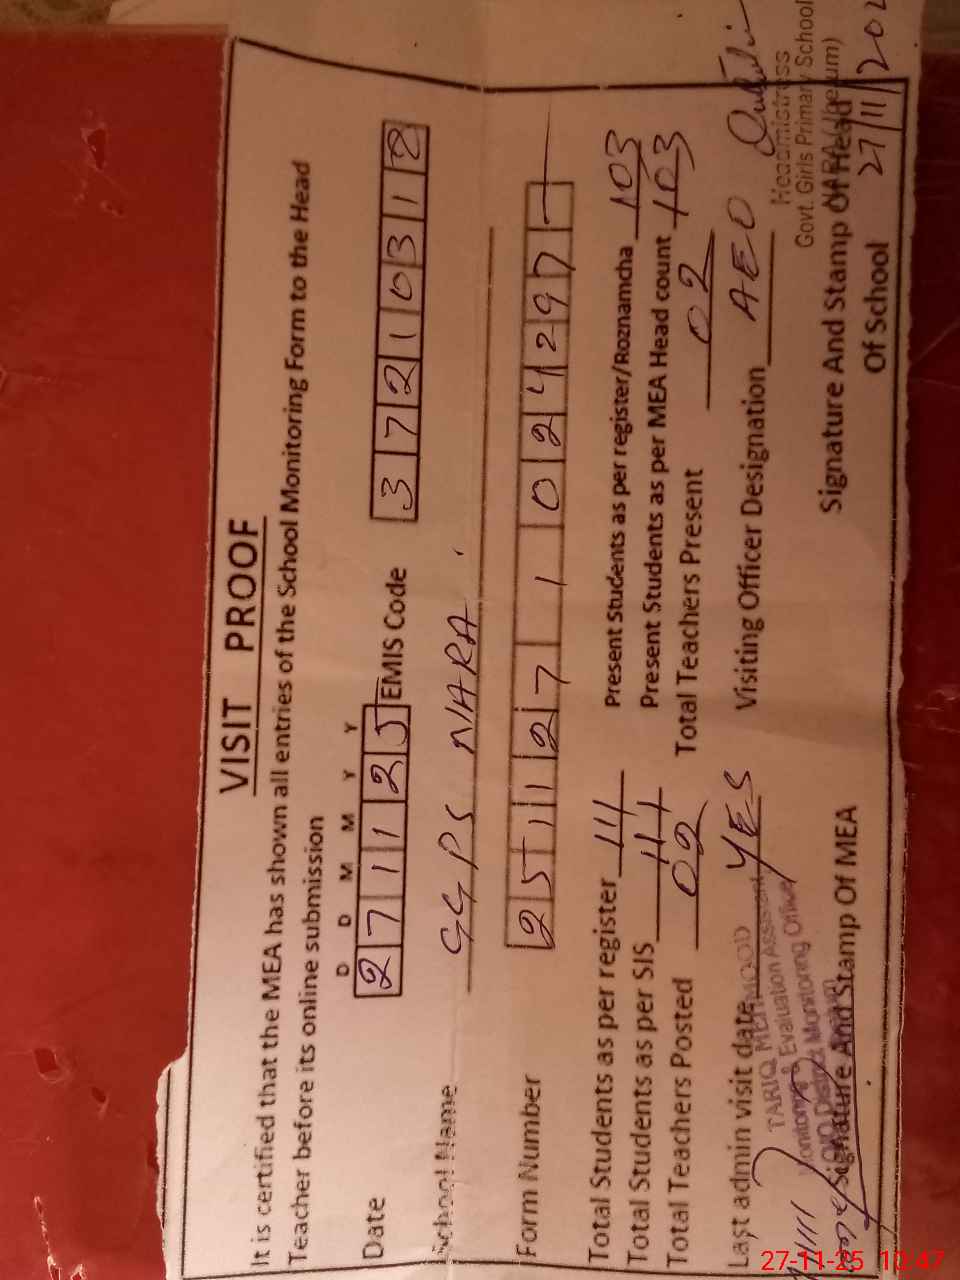 VISIT PROOF
It is certified that the MEA has shown all entries of the School Monitoring Form to the Head
Teacher before its online submission
D D M M Y Y
Date 2 7 1 1 2 5 EMIS Code 3 7 2 1 0 3 1 2
School Name GGPS NARA
Form Number 2 5 1 1 2 7 1 0 2 4 2 9 7
Total Students as per register 111 Present Students as per register/Roznamcha 103
Total Students as per SIS 111 Present Students as per MEA Head count 103
Total Teachers Posted 02 Total Teachers Present 02
Last admin visit date YES Visiting Officer Designation AEO
TARIQ MEHMOOD
Monitoring & Evaluation Assistant
O/O District Monitoring Office
Signature And Stamp Of MEA
Headmistress
Govt. Girls Primary School
NARA
Signature And Stamp Of Head
Of School
27/11/202
27-11-25 10:47